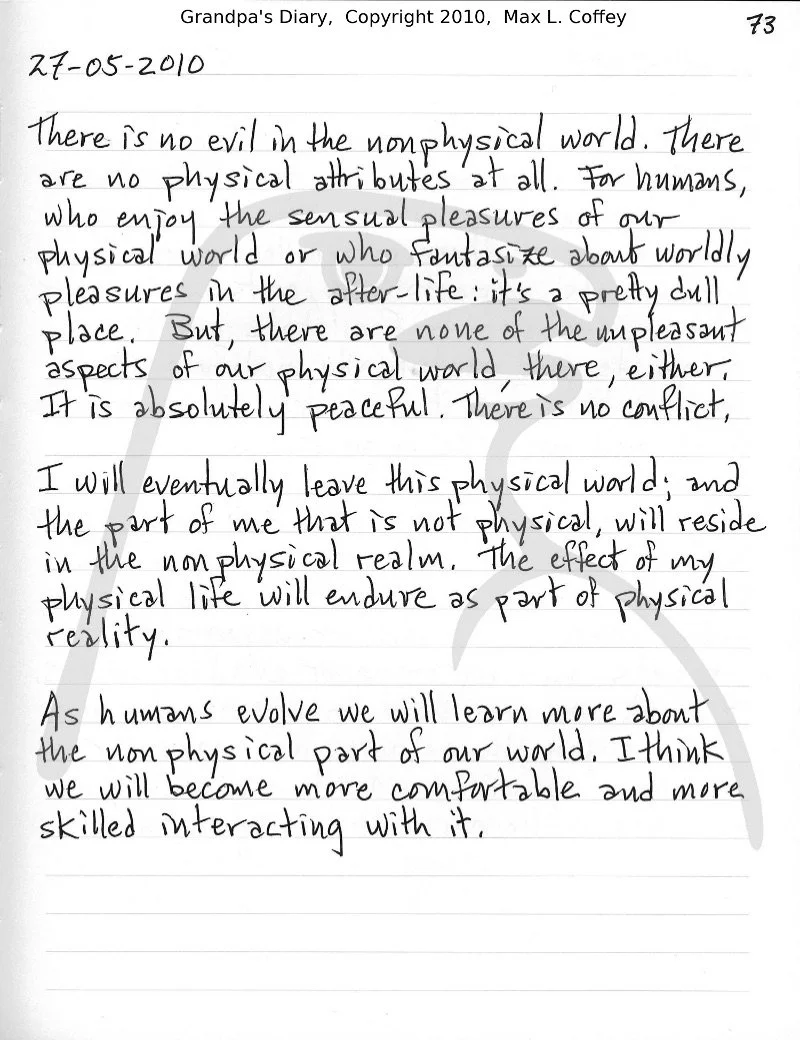 Grandpa's Diary, Copyright 2010, Max L. Coffey
73
27-05-2010
There is no evil in the nonphysical world. There
are no physical attributes at all. For humans,
who enjoy the sensual pleasures of our
physical world or who fantasize about worldly
pleasures in the after-life: it's a pretty dull
place. But, there are none of the unpleasant
aspects of our physical world, there, either.
It is absolutely peaceful. There is no conflict,
I will eventually leave this physical world; and
the part of me that is not physical, will reside
in the nonphysical realm. The effect of my
physical life will endure as part of physical
reality.
As humans evolve we will learn more about
the nonphysical part of our world. I think
we will become more comfortable and more
skilled interacting with it.